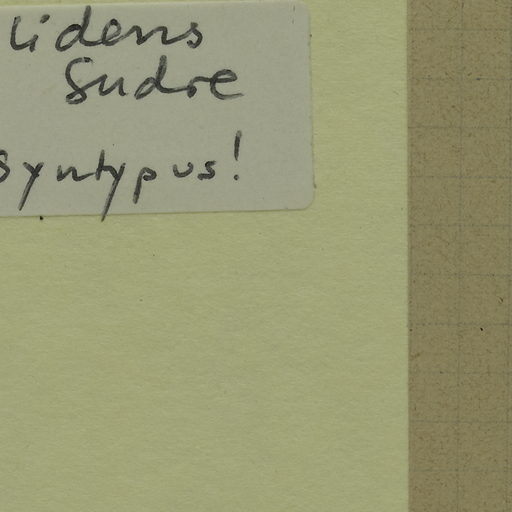 lidens
Sudre
Syntypus!